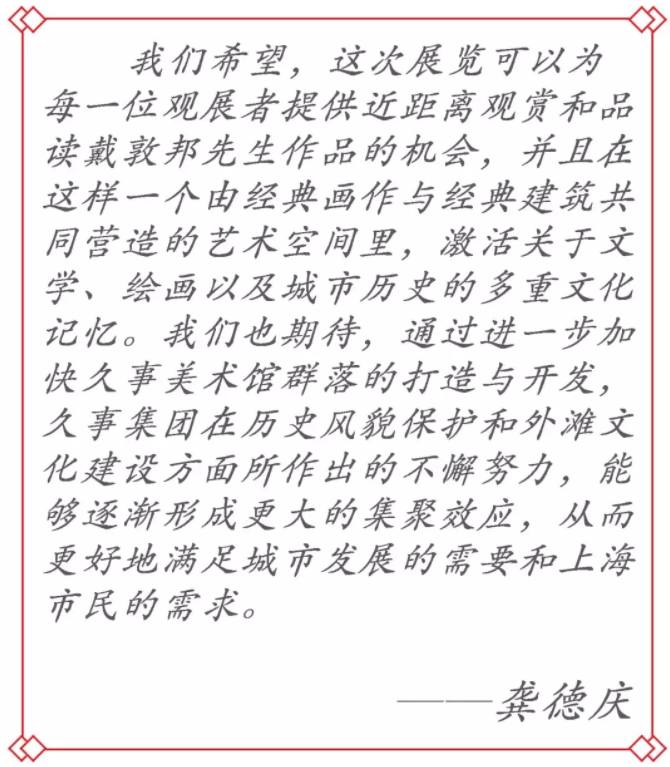 我们希望，这次展览可以为
每一位观展者提供近距离观赏和品
读戴敦邦先生作品的机会，并且在
这样一个由经典画作与经典建筑共
同营造的艺术空间里，激活关于文
学、绘画以及城市历史的多重文化
记忆。我们也期待，通过进一步加
快久事美术馆群落的打造与开发，
久事集团在历史风貌保护和外滩文
化建设方面所作出的不懈努力，能
够逐渐形成更大的集聚效应，从而
更好地满足城市发展的需要和上海
市民的需求。
——龚德庆